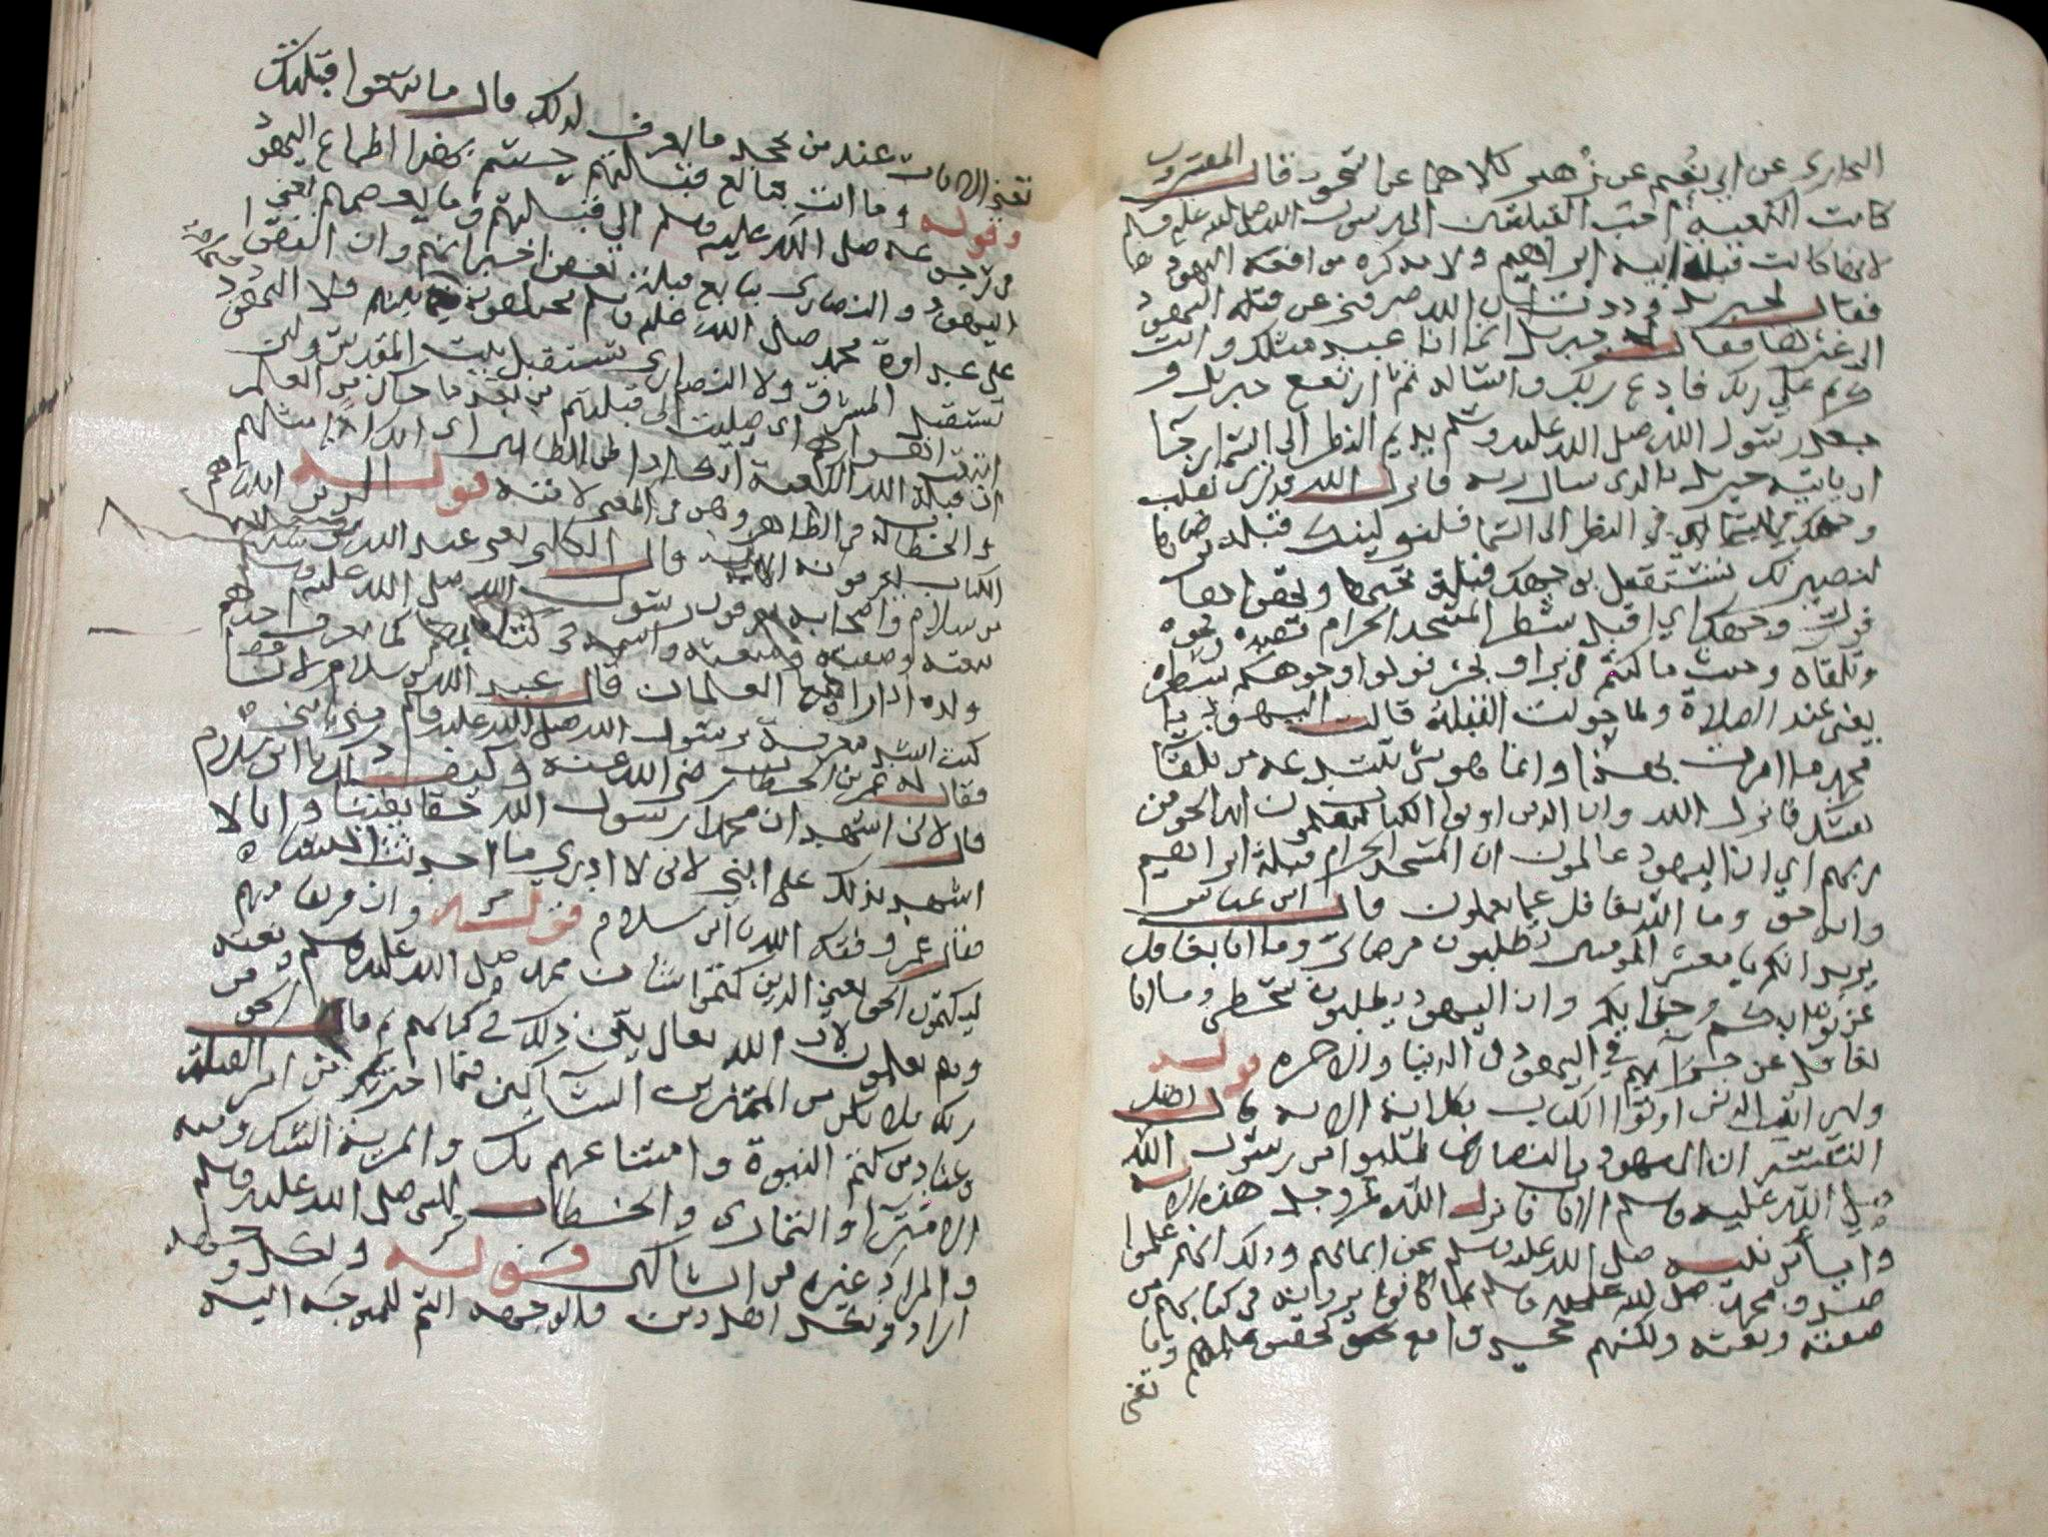 البخاري عن ابي نعيم عن زهير كلاهما عن اسحق وقال المفسرون
كانت الكعبة احب القبلتين الى رسول الله صلى الله عليه وسلم
لانها كانت قبلة ابيه ابراهيم ولا نه كره موافقة اليهود
فقال لجبريل وددت ان الله صرفني عن قبلة اليهود
الى غيرها فقال جبريل انما انا عبد مثلك وانت
كريم على ربك فادع ربك واساله ثم ارتفع جبريل و
جعل رسول الله صلى الله عليه وسلم يديم النظر الى السما رجا
ان ياتيه جبريل بالذي سال ربه فانزل الله قد نرى تقلب
وجهك في السما اي في النظر الى السما فلنولينك قبلة ترضاها
لنصيرنك تستقبل بوجهك قبلة تحبها وتهواها
فول وجهك اي اقبل شطر المسجد الحرام قصده ونحوه
وتلقاه وحيث ما كنتم في بر او بحر فولوا وجوهكم شطره
يعني عند الصلاة ولما حولت القبلة قالت اليهود يا
محمد ما امرت بهذا وانما هو شي تبتدعه من تلقا
نفسك فانزل الله وان الذين اوتوا الكتاب ليعلمون انه الحق من
ربهم اي ان اليهود عالمون ان المسجد الحرام قبلة ابراهيم
وانه حق وما الله بغافل عما يعملون قال ابن عباس
يريد انكم يا معشر المومنين تطلبون مرضاتي وما انا بغافل
عن ثوابكم وجزايكم وان اليهود يطلبون سخطي وما انا
بغافل عن جزآيهم في اليهود في الدنيا والاخره قوله
ولين اتيت الذين اوتوا الكتاب بكل اية الايه قال اهل
التفسير ان اليهود والنصارى طلبوا من رسول الله
صلى الله عليه وسلم الايات فانزل الله عز وجل هذه الايه
وايأس نبيه صلى الله عليه وسلم عن ايمانهم وذلك انهم علموا
صدق محمد صلى الله عليه وسلم بما كانوا يرونه في كتابهم من
صفته ونعته ولكنهم جحدوا مع تحقق علمهم وما
تغني
تغني الايات عند من يجحد ما يعرف لذلك قال ما تبعوا قبلتك
وقوله وما انت بتابع قبلتهم حسم بهذا اطماع اليهود
في رجوعه صلى الله عليه وسلم الى قبلتهم وما بعضهم يعني
اليهود والنصارى بتابع قبلة بعض اخبر انهم وان اتفقوا
على عداوة محمد صلى الله عليه وسلم مختلفون فيما بينهم فلا اليهود
تستقبل المشرق ولا النصارى تستقبل بيت المقدس ولين
اتبعت اهواهم اي صليت الى قبلتهم من بعد ما جاك من العلم
ان قبلة الله الكعبة انك اذا لمن الظالمين اي انك اذا مثلهم
والخطاب له في الظاهر وهو في المعنى لامته قوله الذين اتيناهم
الكتاب يعرفونه الاية قال الكلبي يعني عبد الله
بن سلام واصحابه يعرفون رسول الله صلى الله عليه وسلم
بنعته وصفته واسمه في كتابهم كما يعرف احدهم
ولده اذا راه مع الغلمان قال عبد الله بن سلام لانا
كنت اشد معرفة برسول الله صلى الله عليه وسلم مني بابني
فقال له عمر بن الخطاب رضي الله عنه وكيف ذاك يا ابن سلام
قال لاني اشهد ان محمدا رسول الله حقا يقينا وانا لا
اشهد بذلك على ابني لاني لا ادري ما احدثت النساء
فقال عمر وفقك الله يا ابن سلام قوله وان فريقا منهم
ليكتمون الحق يعني الذين كتموا شان محمد صلى الله عليه وسلم ونعته
وهم يعلمون لان الله تعالى بين ذلك في كتابهم ثم قال الحق من
ربك فلا تكن من الممترين الشآكين فيما اخبرتك من امر القبلة
وعناد من كتم النبوة وامتناعهم بك والمرية الشك ومنه
الامترا والتمارى والخطاب للنبي صلى الله عليه وسلم
والمراد غيره من الشاكين قوله ولكل وجهة
اراد ولكل اهل دين والوجهه اسم للمتوجه اليه